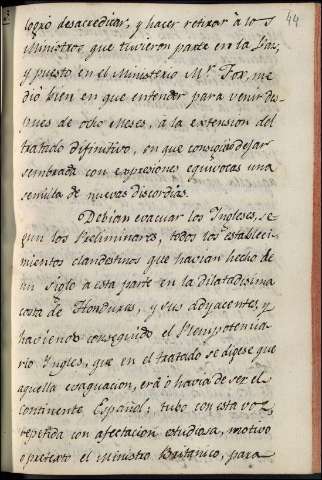 44
logró desacreditar, y hacer retirar à los
Ministros que tuvieron parte en la Paz,
y puesto en el Ministerio Mr. Fox, me
dió bien en que entender para venir des-
pues de ocho Meses, à la extension del
tratado definitivo, en que consiguió dejar
sembrada con expresiones equivocas una
semilla de nuevas discordias.
Debian evacuar los Ingleses, se-
gun los Preliminares, todos los estableci-
mientos clandestinos que havian hecho de
un siglo à esta parte en la dilatadisima
costa de Honduras, y sus adyacentes, y
haviendo conseguido el Plenipotencia-
rio Ingles, que en el tratado se digese que
aquella evaquacion, erà ò havia de ser el
continente Español; tubo con esta voz,
repetida con afectacion estudiosa, motivo
ò pretexto el Ministro Britanico, para